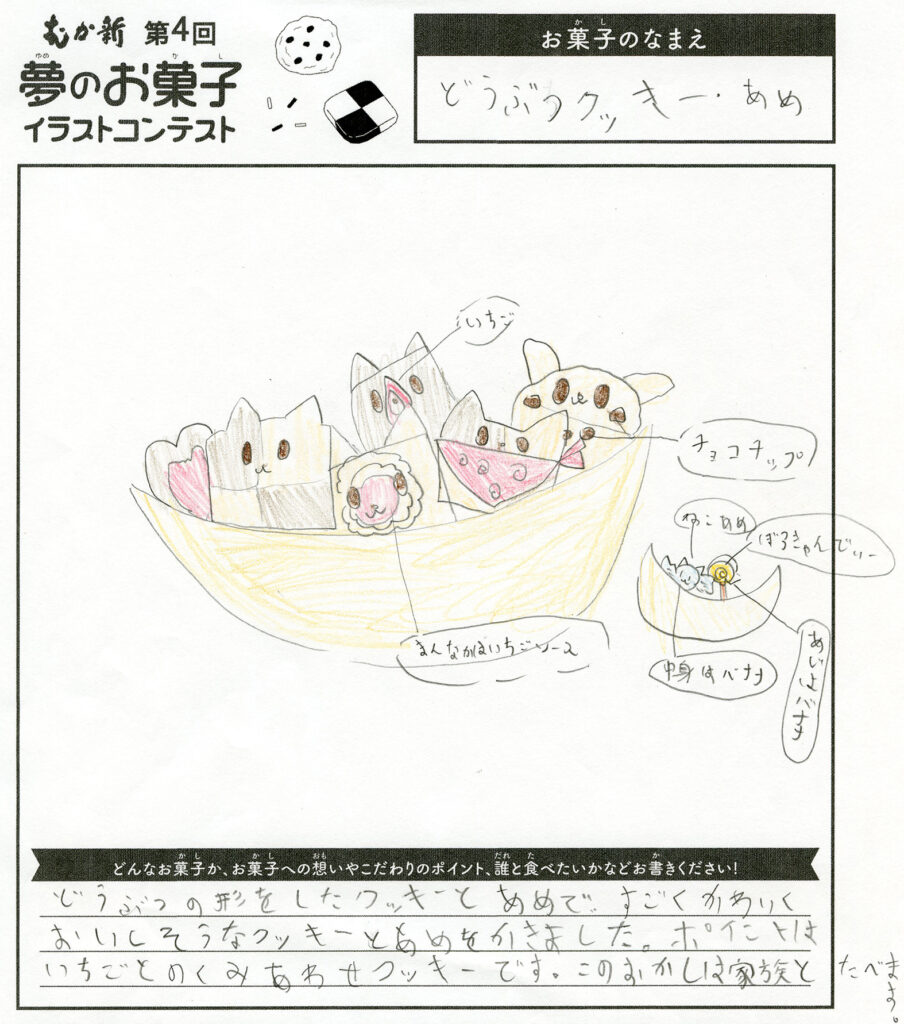 むか新 第4回
夢のお菓子
ゆめ か し
イラストコンテスト
お菓子のなまえ
か し
どうぶつクッキー・あめ
いちご
チョコチップ
ねこあめ
ぼうきゃんでぃー
まんなかはいちごソース
中身はバナナ
あじはバナナ
どんなお菓子か、お菓子への想いやこだわりのポイント、誰と食べたいかなどお書きください!
か し か し おも だれ た か
どうぶつの形をしたクッキーとあめで、すごくかわいく
おいしそうなクッキーとあめをかきました。ポイントは
いちごとのくみあわせクッキーです。このおかしは家族と
たべます。